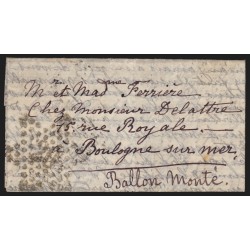 Mr et Made Ferrière
Chez Monsieur Delattre
15, rue Royale.
à Boulogne sur mer,
Ballon Monté.